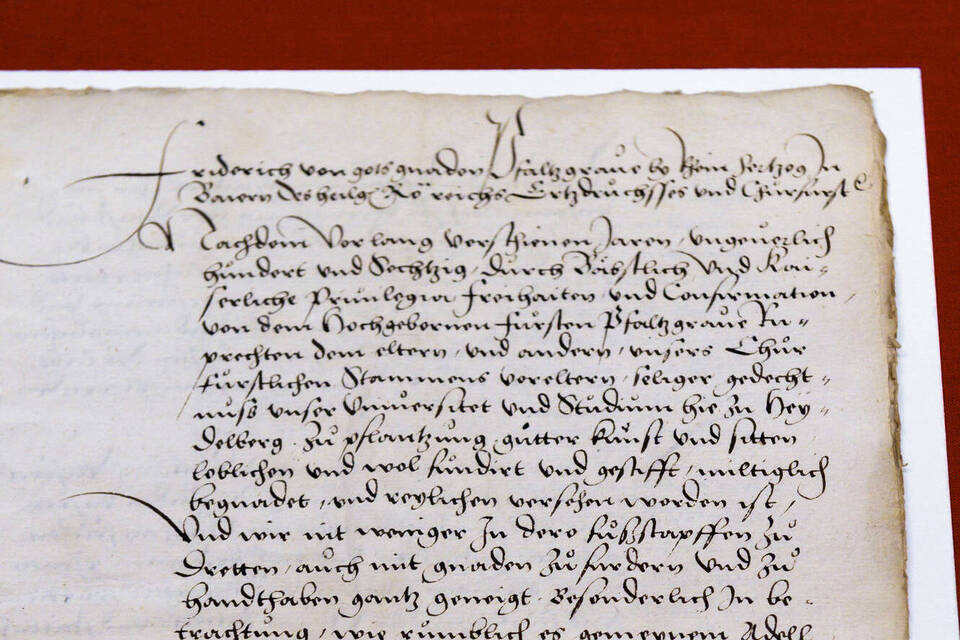 Friderich von gots gnaden Pfaltzgraue by Rein Hertzog In
Baiern des heilg Rö reichs Ertzdruchsses vnd Churfurst
Nachdem Vor lang verschienen Jaren, vngeuerlich
hundert vnd Sechtzig, durch Bäbstlich Vnd Kai-
serliche Priuilegia freihaiten, vnd Confirmation,
von dem Hochgebornen fursten Pfaltzgraue Ru-
prechten dem eltern, vnd andern, vnsers Chůr
fůrstlichen Stammens voreltern, seliger gedecht-
nuss vnser Vniuersitet vnd Studium hie zu Hey-
delberg. Zů pflantzung gůtter kůnst vnd sitten
loblichen vnd wol fůndirt vnd gestifft, miltiglich
begnadet, vnd reylichen versehen worden ist,
Vnd wir nit weniger In dero fůßstapffen Zů
Dretten, auch mit gnaden Zů furdern vnd Zů
handthaben gantz geneigt. Besonderlich In be-
trachtung, wie růmblich es gemeynem Adell